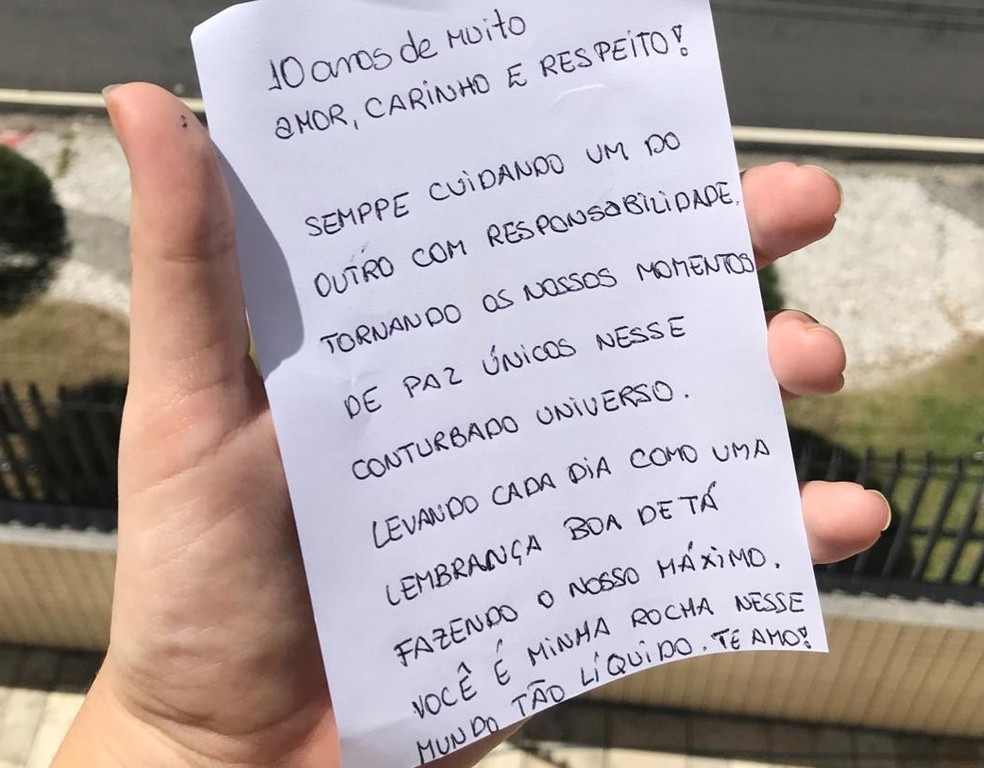 10 anos de muito
amor, CARINHO E RESPEITO!
SEMPPE CUIDANDO UM DO
OUTRO COM RESPONSABILIDADE.
TORNANDO OS NOSSOS MOMENTOS
DE PAZ ÚNICOS NESSE
CONTURBADO UNIVERSO.
LEVANDO CADA DIA COMO UMA
LEMBRANÇA BOA DE TÁ
FAZENDO O NOSSO MÁXIMO.
VOCÊ É MINHA ROCHA NESSE
MUNDO TÃO LÍQUIDO. TE AMO!